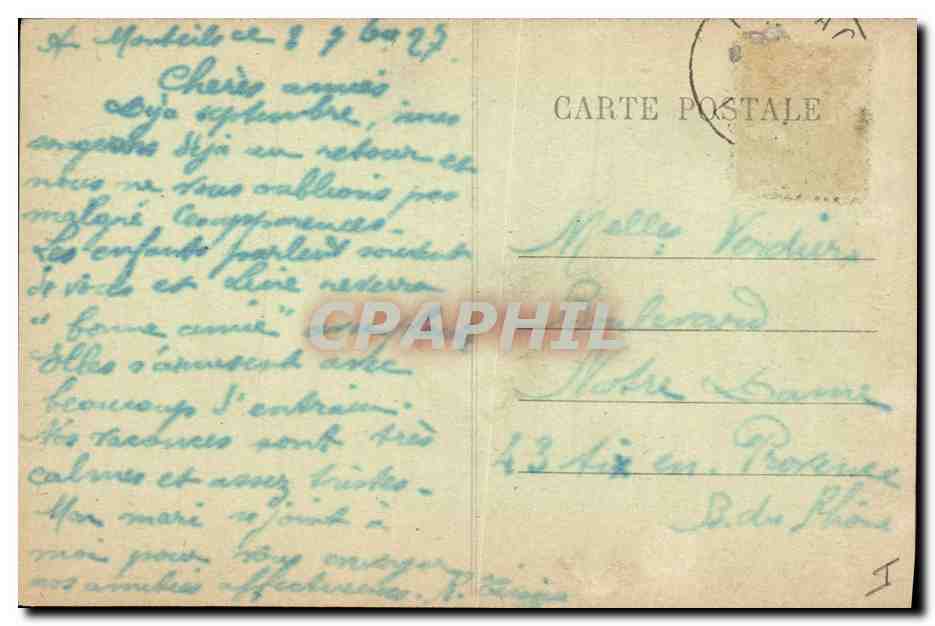 A Monteils ce 2 7bre 27
Chères amies
Déjà septembre, nous
songeons déjà au retour et
nous ne vous oublions pas
malgré
Les enfants parlent souvent
de vous et reverra
"bonne amie"
Elles s'amusent avec
beaucoup d'entrain.
Nos vacances sont très
calmes et assez tristes.
Mon mari se joint à
moi pour vous envoyer
nos amitiés affectueuses.
CARTE POSTALE
Melles Verdier
Boulevard
Notre Dame
23 Aix en Provence
B. du Rhône
CPAPHIL
I